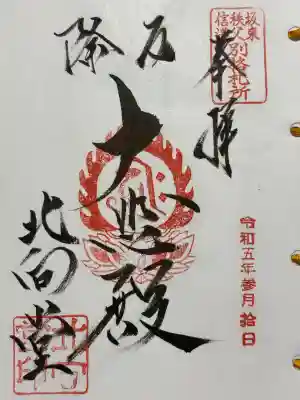 坂東
秩父
信濃
別格札所
奉拝
令和五年参月拾日
厄除
大悲殿
北向堂